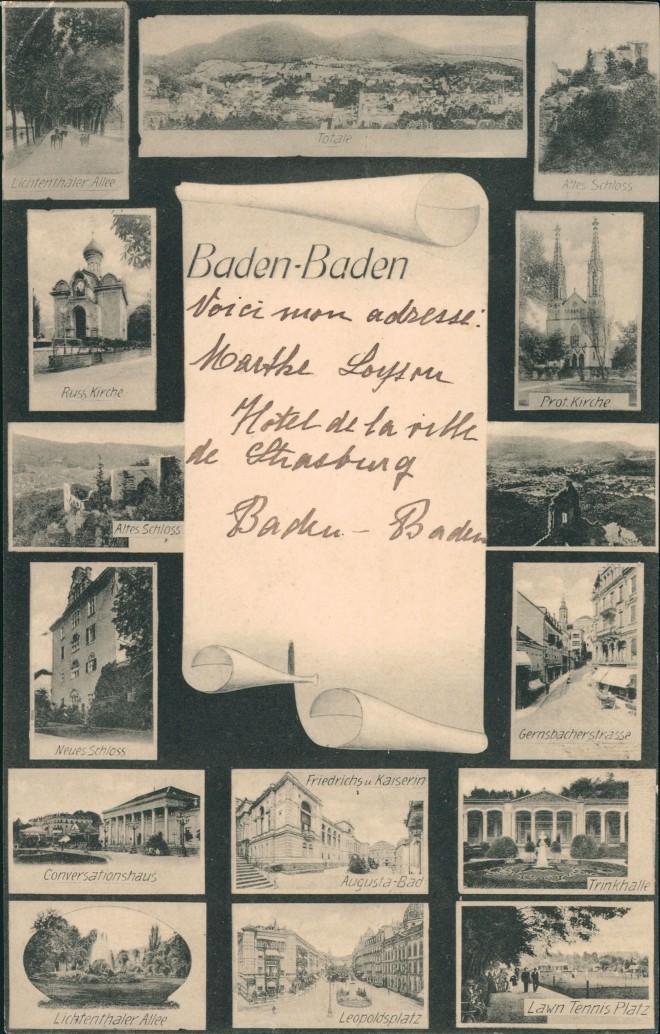 Lichtenthaler Allee
Totale
Altes Schloss
Baden-Baden
Voici mon adresse:
Marthe Loyson
Hôtel de la ville
de Strasburg
Baden – Baden
Russ. Kirche
Prot. Kirche
Altes Schloss
Neues Schloss
Gernsbacherstrasse
Conversationshaus
Friedrichs u Kaiserin
Augusta-Bad
Trinkhalle
Lichtenthaler Allee
Leopoldsplatz
Lawn Tennis Platz